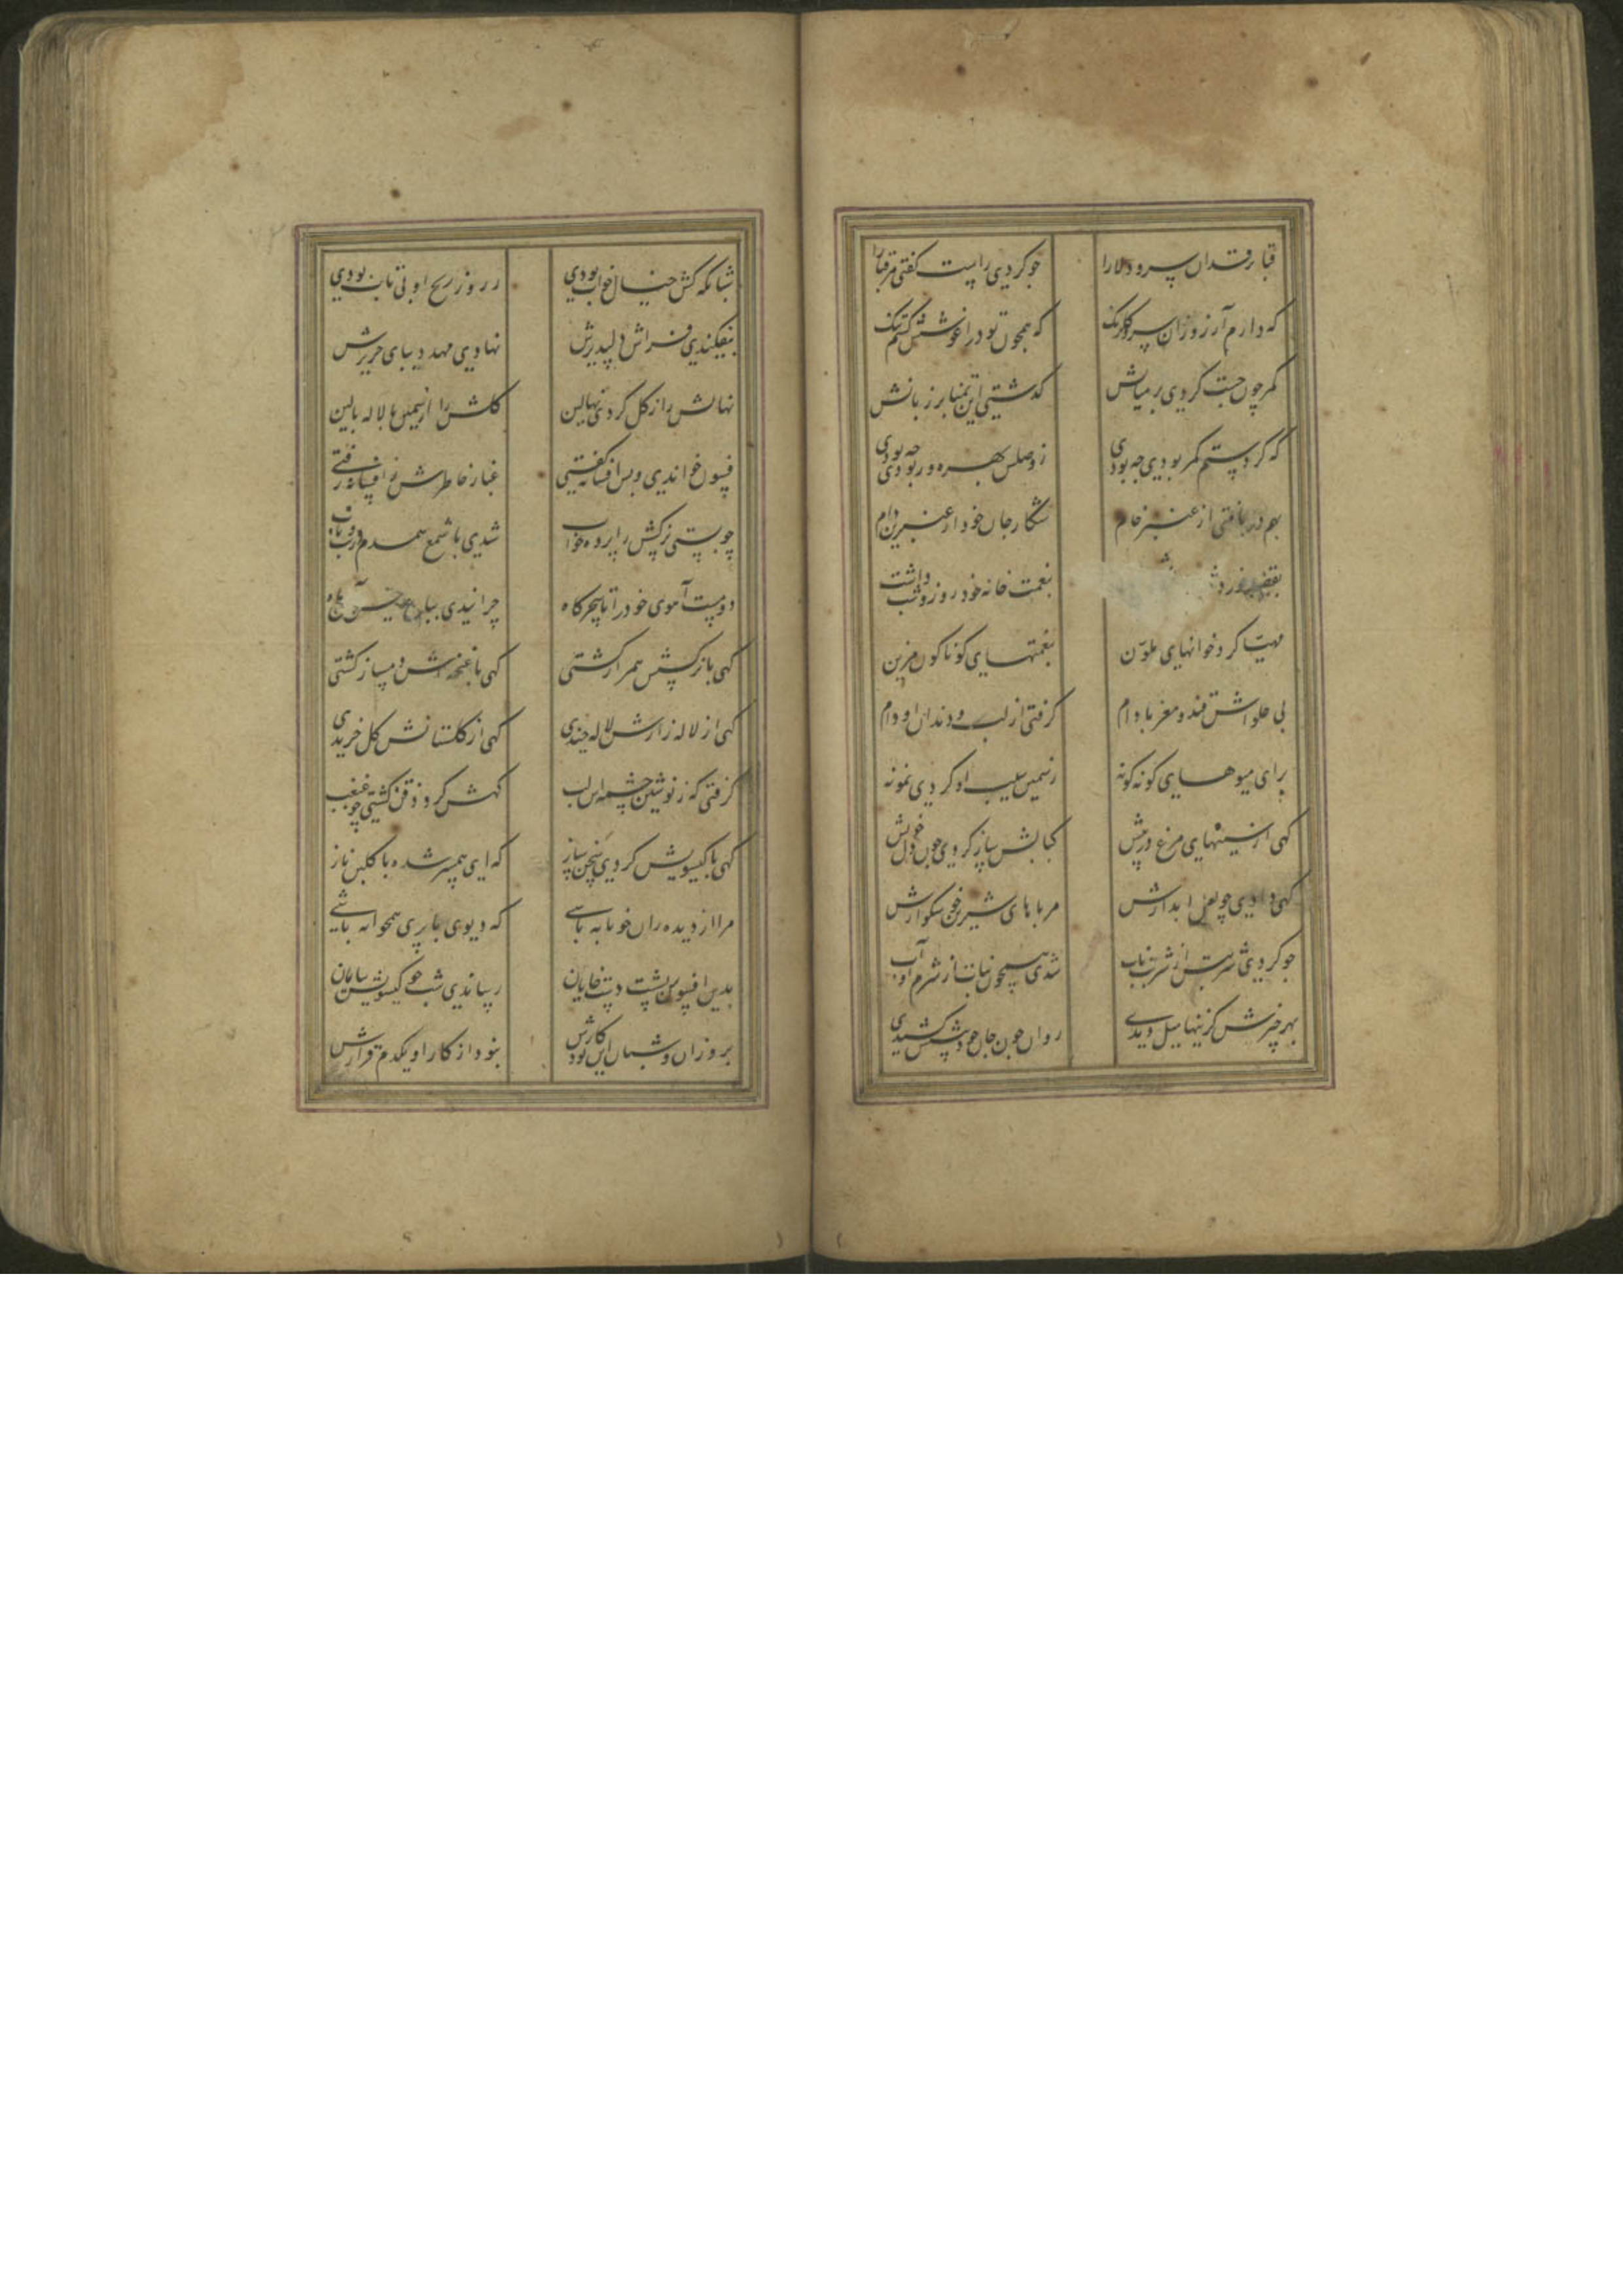 قبا بر قد آن سرو دلارا
جو کردی راست گفتی مر قبا را
که دارم آرزو زان سرو گلرنک
که همجون تو در آغوشش کشم تنک
کمر چون جست کردی بر میانش
کدشتی این تمنا بر زبانش
که کر دستم کمر بودی جه بودی
ز وصلش بهره ور بودی جه بودی
بهم در بافتی از عنبر خام
شکار جان خود را عنبرین دام
بنعمت خانه خود روز و شب داشت
مهیا کرد خوانهای ملون
بنعمتهای کوناکون مزین
پی حلواش قند و مغز بادام
کرفتی از لب و دندان او وام
برای میوهای کونه کونه
ز سیمین سیب او کردی نمونه
کهی از سینهای مرغ در پیش
کبابش ساز کردی چون دل خویش
کهی دادی چو لعل آبدارش
مرباهای شیرین خوشکوارش
جو کردی شربتش از شربت ناب
شدی همچون نبات از شرم او آب
بهر چیزش کزینها میل دیدی
روان چون جان خود پیشش کشیدی
شبانکه کش خیال خواب بودی
ز روز رنج او بی تاب بودی
بیفکندی فراش دلپذیرش
نهادی مهد دیبای حریرش
نهالش را ز کل کردی نهالین
کلش را از سمن یا لاله بالین
فسون خواندی و بس افسانه کفتی
غبار خاطرش ز افسانه رفتی
چو بستی نرکسش را پرده خواب
شدی با شمع همدم در تب و تاب
دو مست آهوی خود را تا سحرکاه
چرانیدی بباغ حسن آن ماه
کهی با نرکسش همراز کشتی
کهی با غنچه‌اش دمساز کشتی
کهی از لاله زارش لاله چیدی
کهی از کلستانش کل خریدی
کرفتی که ز نوشین چشمه اش لب
کهش کرد ذقن کشتی چو غبغب
کهی با کیسویش کردی سخن ساز
که ای همسر شده با کلبن ناز
مرا از دیده ران خونابه باشی
که دیوی با پری همخوابه باشی
بدین افسون بشت دست خایان
رساندی شب چو کیسویش بپایان
بروزان و شبان این بود کارش
نبود از کار او یکدم قرارش